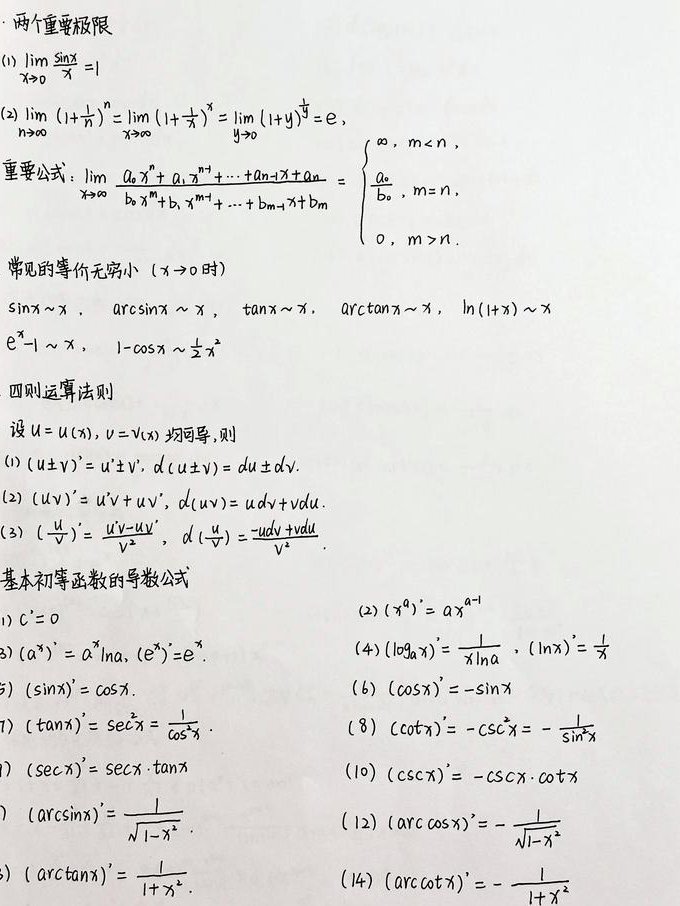 · 两个重要极限
(1) lim x→0 sinx/x = 1
(2) lim n→∞ (1+1/n)^n = lim x→∞ (1+1/x)^x = lim y→0 (1+y)^(1/y) = e,
重要公式: lim x→∞ (a₀xⁿ+a₁xⁿ⁻¹+…+aₙ₋₁x+aₙ)/(b₀xᵐ+b₁xᵐ⁻¹+…+bₘ₋₁x+bₘ) = { ∞, m<n,
a₀/b₀, m=n,
0, m>n.
常见的等价无穷小 (x→0时)
sinx~x, arcsinx~x, tanx~x, arctanx~x, ln(1+x)~x
e^x-1~x, 1-cosx~½x²
. 四则运算法则
设u=u(x), v=v(x)均可导,则
(1) (u±v)'=u'±v', d(u±v)=du±dv.
(2) (uv)'=u'v+uv', d(uv)=udv+vdu.
(3) (u/v)'=(u'v-uv')/v², d(u/v)=(-udv+vdu)/v².
基本初等函数的导数公式
1) C'=0 (2) (x^a)'=ax^(a-1)
3) (a^x)'=a^x lna, (e^x)'=e^x. (4) (logₐx)'=1/(xlna), (lnx)'=1/x
5) (sinx)'=cosx. (6) (cosx)'=-sinx
7) (tanx)'=sec²x=1/cos²x. (8) (cotx)'=-csc²x=-1/sin²x
9) (secx)'=secx·tanx (10) (cscx)'=-cscx·cotx
) (arcsinx)'=1/√(1-x²). (12) (arccosx)'=-1/√(1-x²)
3) (arctanx)'=1/(1+x²). (14) (arccotx)'=-1/(1+x²)